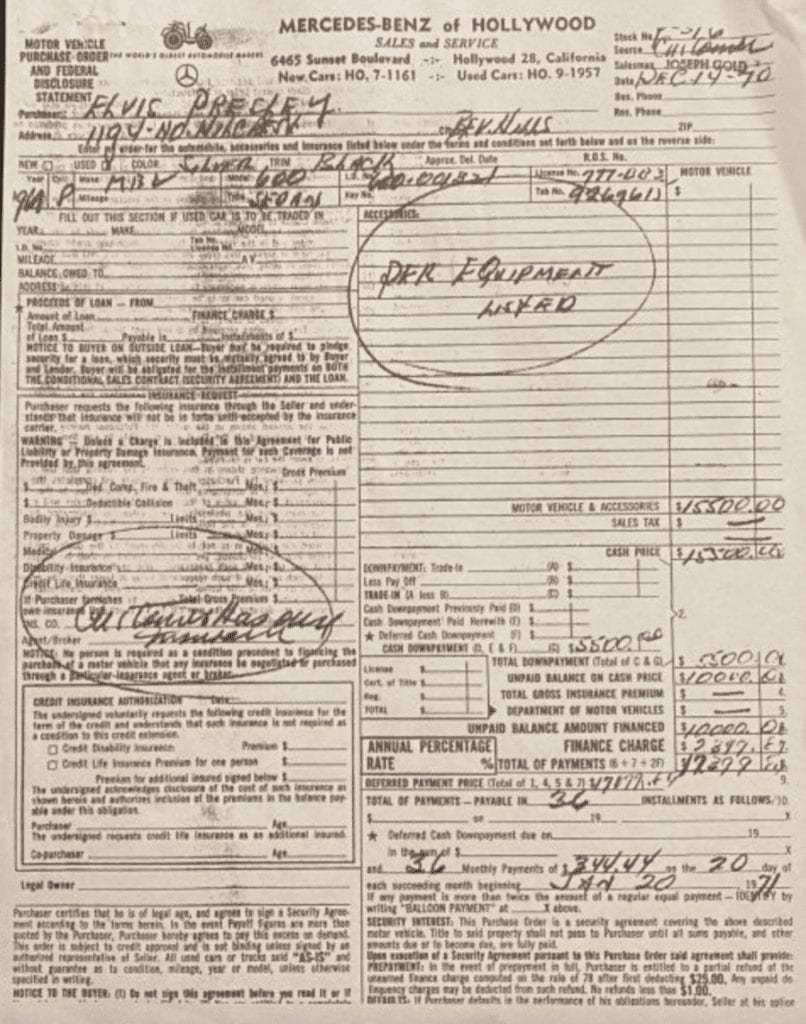 MERCEDES-BENZ of HOLLYWOOD
SALES and SERVICE
6465 Sunset Boulevard -:- Hollywood 28, California
New Cars: HO. 7-1161 -:- Used Cars: HO. 9-1957
MOTOR VEHICLE
PURCHASE ORDER
AND FEDERAL
DISCLOSURE
STATEMENT
THE WORLD'S OLDEST AUTOMOBILE MAKERS
Stock No.
Source
Salesman JOSEPH GOLD
Date DEC-14-70
Bus. Phone
Res. Phone
Purchaser ELVIS PRESLEY
Address 1174-NO. HILLCREST BEV. HILLS ZIP
Enter my order for the automobile, accessories and insurance listed below under the terms and conditions set forth below and on the reverse side:
NEW USED COLOR SILVER TRIM BLACK Approx. Del. Date R.O.S. No.
Year Make Model 600 License No. MOTOR VEHICLE
Mileage Type SEDAN Key No. Tab No. $
FILL OUT THIS SECTION IF USED CAR IS TO BE TRADED IN
YEAR MAKE MODEL
I.D. No.
MILEAGE
BALANCE OWED TO
ADDRESS
ACCESSORIES:
PER EQUIPMENT
LISTED
PROCEEDS OF LOAN - FROM
Amount of Loan FINANCE CHARGE $
Total Amount
of Loan $ Payable in Installments of $
NOTICE TO BUYER ON OUTSIDE LOAN-Buyer may be required to pledge
security for a loan, which security must be mutually agreed to by Buyer
and Lender. Buyer will be obligated for the installment payments on BOTH
THE CONDITIONAL SALES CONTRACT (SECURITY AGREEMENT) AND THE LOAN.
INSURANCE REQUEST
Purchaser requests the following insurance through the Seller and under-
stands that insurance will not be in force until accepted by the insurance
carrier.
WARNING - Unless a Charge is included in this Agreement for Public
Liability or Property Damage Insurance, Payment for such Coverage is not
Provided by this agreement.
Gross Premium
$ Ded. Comp. Fire & Theft Mos.; $
$ Deductible Collision Mos.; $
Bodily Injury $ Limits Mos.; $
Property Damage $ Limits Mos.; $
Medical
Disability Insurance Mos.; $
Credit Life Insurance Mos.; $
If Purchaser furnishes Total Gross Premium $
own insurance
INS. CO. Customer Has own
Agent/Broker
NOTICE: No person is required as a condition precedent to financing the
purchase of a motor vehicle that any insurance be negotiated or purchased
through a particular insurance agent or broker.
CREDIT INSURANCE AUTHORIZATION Date
The undersigned voluntarily requests the following credit insurance for the
term of the credit and understands that such insurance is not required as
a condition to this credit extension.
Credit Disability Insurance: Premium $
Credit Life Insurance Premium for one person $
Premium for additional insured signed below $
The undersigned acknowledges disclosure of the cost of such insurance as
shown herein and authorizes inclusion of the premiums in the balance pay-
able under this obligation.
Purchaser Age
The undersigned requests credit life insurance as an additional insured.
Co-purchaser Age
Legal Owner
Purchaser certifies that he is of legal age, and agrees to sign a Security Agree-
ment according to the terms herein. In the event Payoff figures are more than
quoted by the Purchaser, Purchaser hereby agrees to pay this excess on demand.
This order is subject to credit approval and is not binding unless signed by an
authorized representative of Seller. All used cars or trucks sold "AS-IS" and
without guarantee as to condition, mileage, year or model, unless otherwise
specified in writing.
NOTICE TO THE BUYER: (1) Do not sign this agreement before you read it or if
MOTOR VEHICLE & ACCESSORIES $15500.00
SALES TAX $ —
CASH PRICE $15500.00
DOWNPAYMENT: Trade-In (A) $
Less Pay Off (B) $
TRADE-IN (A less B) (C) $
Cash Downpayment Previously Paid (D) $
Cash Downpayment Paid Herewith (E) $ 2.
★ Deferred Cash Downpayment (F) $
CASH DOWNPAYMENT (D, E & F) (G) $5500.00
TOTAL DOWNPAYMENT (Total of C & G) $ 5500.00
License $
Cert. of Title $
Reg. $
TOTAL $
UNPAID BALANCE ON CASH PRICE $10000.00
TOTAL GROSS INSURANCE PREMIUM $ — 4.
DEPARTMENT OF MOTOR VEHICLES $ — 5.
UNPAID BALANCE AMOUNT FINANCED $10000.00
ANNUAL PERCENTAGE
RATE %
FINANCE CHARGE $
TOTAL OF PAYMENTS (6 + 7 + 2F) $
DEFERRED PAYMENT PRICE (Total of 1, 4, 5 & 7) $ 9.
TOTAL OF PAYMENTS - PAYABLE IN 36 INSTALLMENTS AS FOLLOWS: 10.
$ on 19 X
★ Deferred Cash Downpayment due on 19
in the sum of $ X
and 36 Monthly Payments of $344.44 on the 20 day of
each succeeding month beginning JAN 20 1971
If any payment is more than twice the amount of a regular equal payment - IDENTIFY by
writing "BALLOON PAYMENT" at X above.
SECURITY INTEREST: This Purchase Order is a security agreement covering the above described
motor vehicle. Title to said property shall not pass to Purchaser until all sums payable, and other
amounts due or to become due, are fully paid.
Upon execution of a Security Agreement pursuant to this Purchase Order said agreement shall provide:
PREPAYMENT: In the event of prepayment in full, Purchaser is entitled to a partial refund of the
unearned finance charge computed on the rule of 78 after first deducting $25.00. Any unpaid de-
linquency charges may be deducted from such refund. No refunds less than $1.00.
DEFAULTS: If Purchaser defaults in the performance of his obligations hereunder, Seller at his option